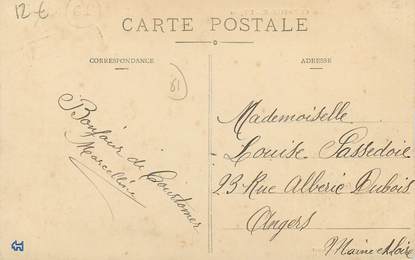 12 €
CARTE POSTALE
CORRESPONDANCE
ADRESSE
61
Bonjour de Courtomer
Marcelline
Mademoiselle
Louise Passedoie
23 Rue Alberic Dubois
Angers
Maine et Loire